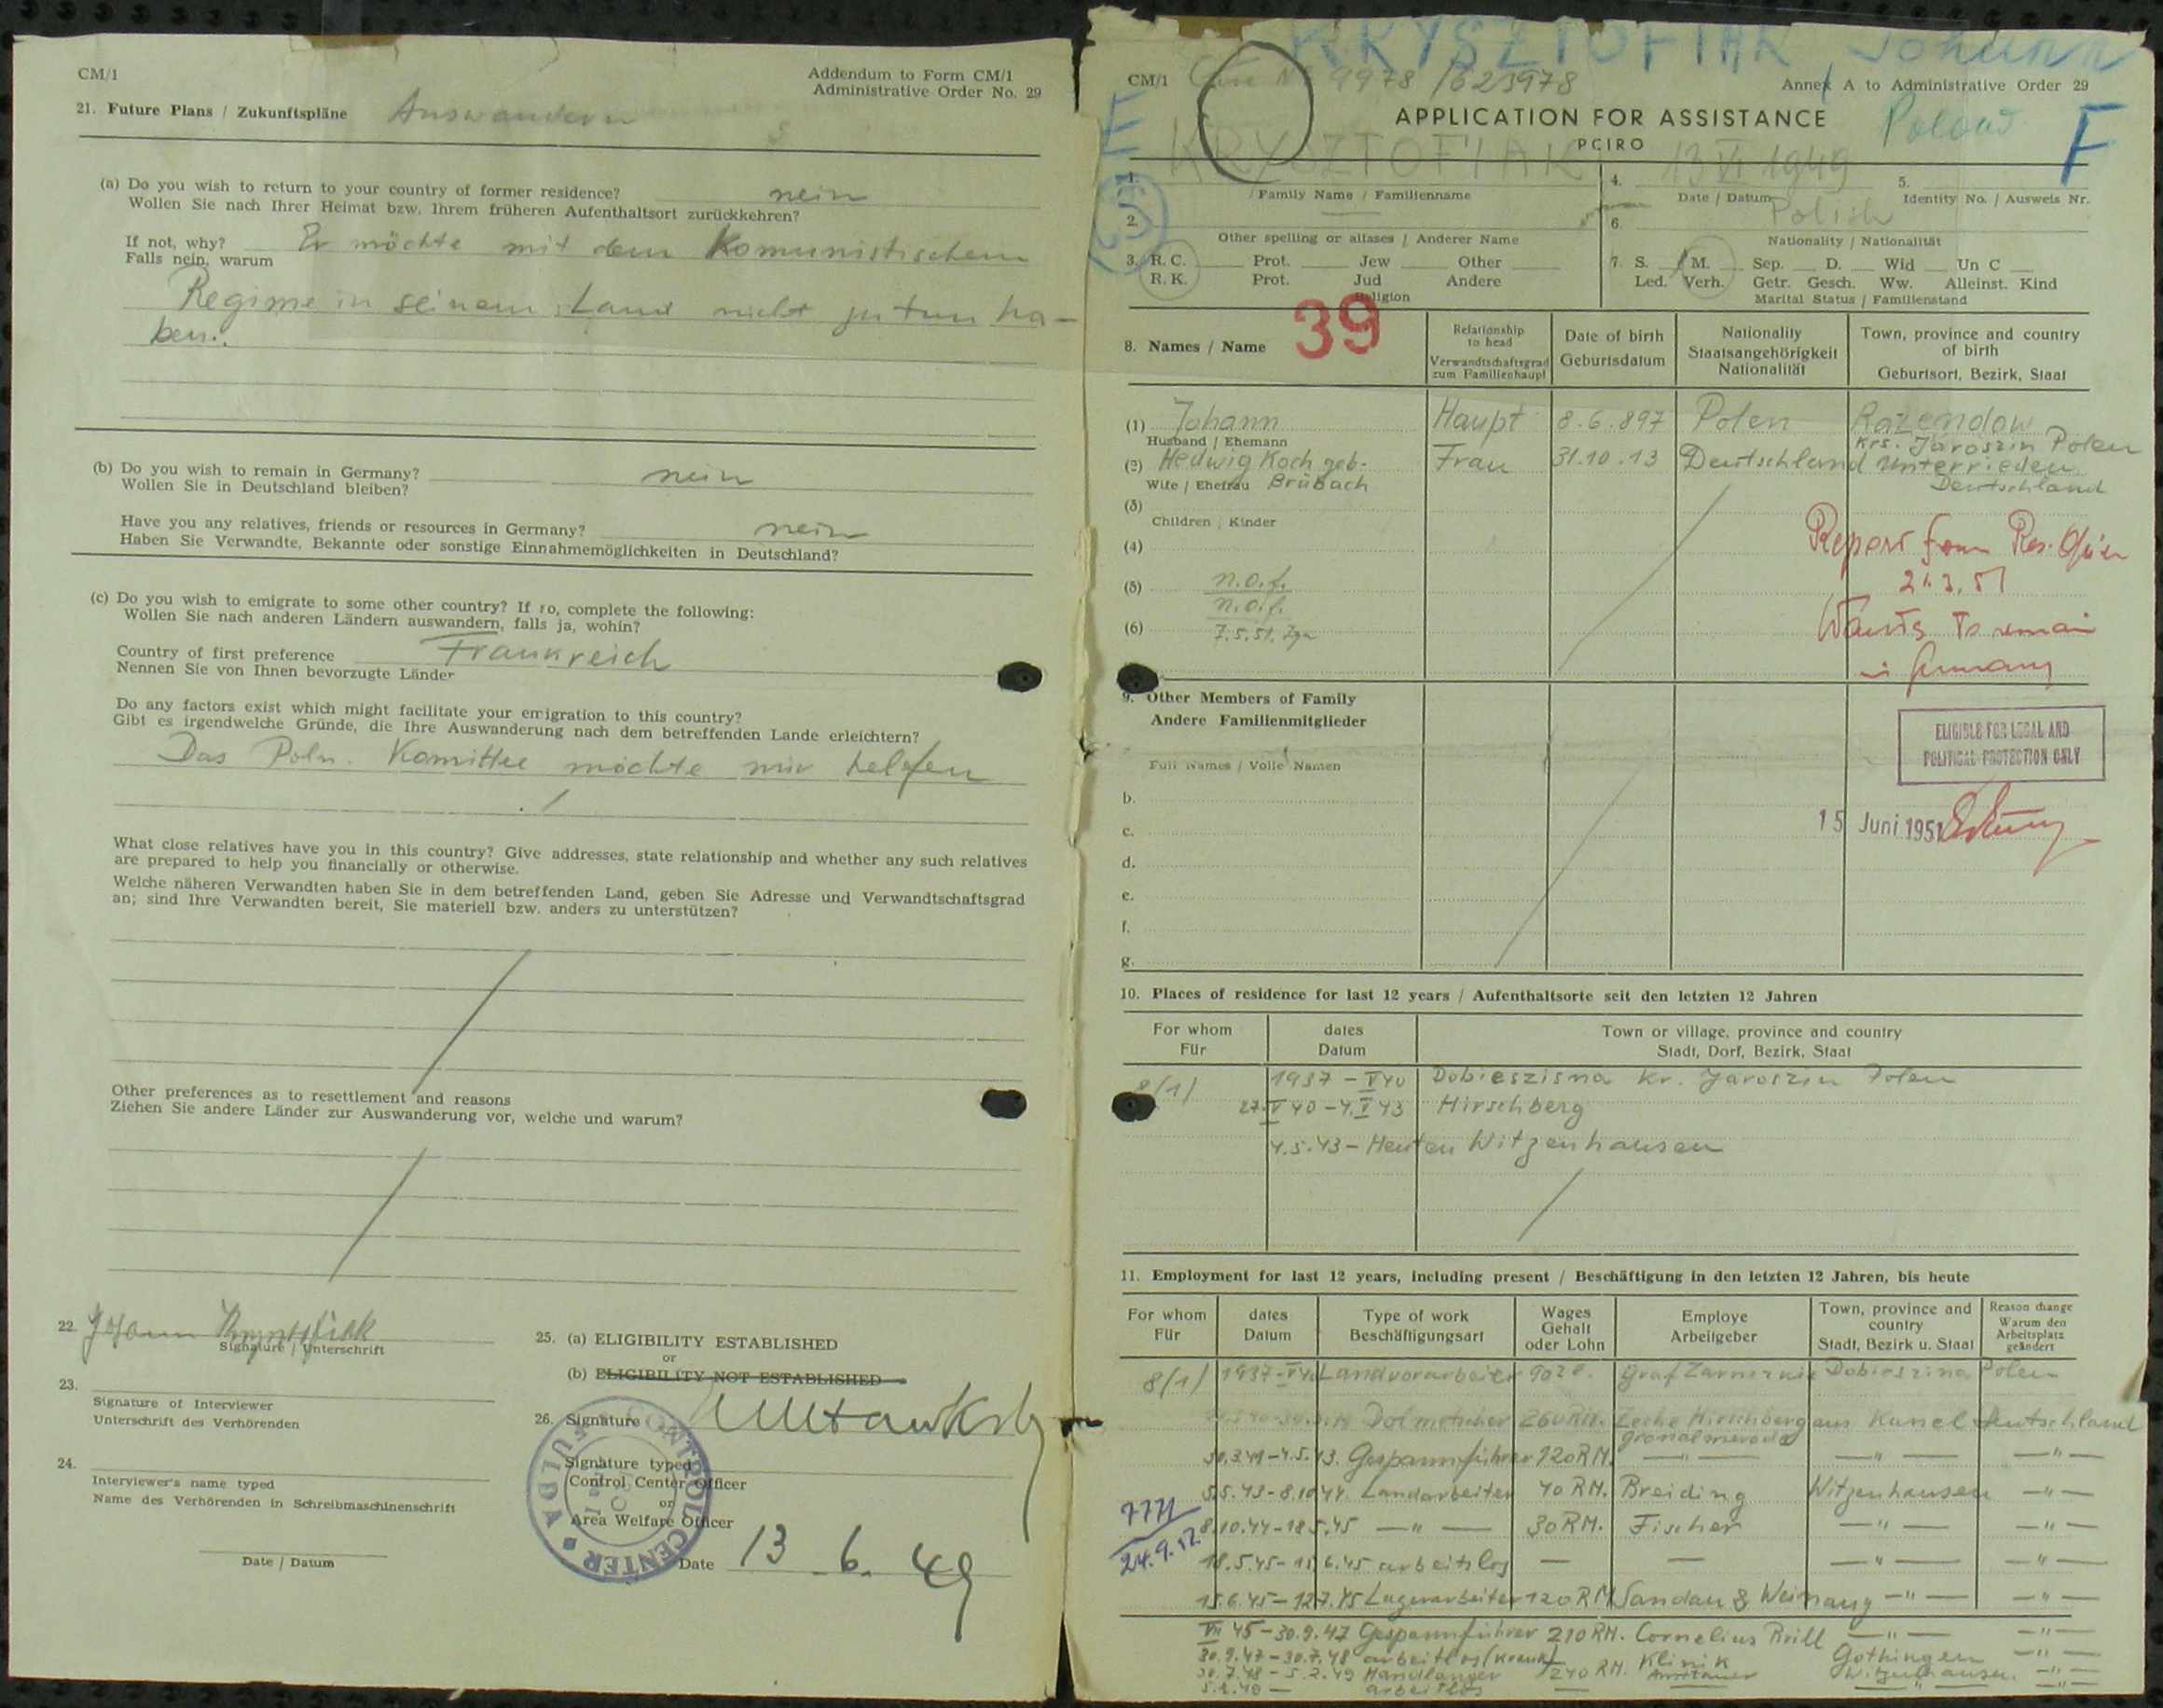 CM/1
Addendum to Form CM/1
Administrative Order No. 29
21. Future Plans / Zukunftspläne Auswandern
(a) Do you wish to return to your country of former residence? nein
Wollen Sie nach Ihrer Heimat bzw. Ihrem früheren Aufenthaltsort zurückkehren?
If not, why? Er möchte mit dem Komunistischem
Falls nein, warum
Regime in seinem Land nicht zu tun ha-
ben.
(b) Do you wish to remain in Germany? nein
Wollen Sie in Deutschland bleiben?
Have you any relatives, friends or resources in Germany? nein
Haben Sie Verwandte, Bekannte oder sonstige Einnahmemöglichkeiten in Deutschland?
(c) Do you wish to emigrate to some other country? If so, complete the following:
Wollen Sie nach anderen Ländern auswandern, falls ja, wohin?
Country of first preference Frankreich
Nennen Sie von Ihnen bevorzugte Länder
Do any factors exist which might facilitate your emigration to this country?
Gibt es irgendwelche Gründe, die Ihre Auswanderung nach dem betreffenden Lande erleichtern?
Das Poln. Komittee möchte mir helfen
What close relatives have you in this country? Give addresses, state relationship and whether any such relatives
are prepared to help you financially or otherwise.
Welche näheren Verwandten haben Sie in dem betreffenden Land, geben Sie Adresse und Verwandtschaftsgrad
an; sind Ihre Verwandten bereit, Sie materiell bzw. anders zu unterstützen?
Other preferences as to resettlement and reasons
Ziehen Sie andere Länder zur Auswanderung vor, welche und warum?
22. Johann
Signature / Unterschrift
23.
Signature of Interviewer
Unterschrift des Verhörenden
24.
Interviewer's name typed
Name des Verhörenden in Schreibmaschinenschrift
Date / Datum
25. (a) ELIGIBILITY ESTABLISHED
or
(b) ELIGIBILITY NOT ESTABLISHED
26. Signature
Signature typed
Control Center Officer
or
Area Welfare Officer
Date 13.6.49
CONTROL CENTER FULDA
KRYSZTOFIAK Johann
CM/1 Case No 9978 /623978
Annex A to Administrative Order 29
APPLICATION FOR ASSISTANCE
PCIRO
Poland
F
1. KRYSZTOFIAK
Family Name / Familienname
4. 13 VI 1949
Date / Datum
5.
Identity No. / Ausweis Nr.
2.
Other spelling or aliases / Anderer Name
6. Polish
Nationality / Nationalität
3. R. C. Prot. Jew Other
R. K. Prot. Jud Andere
Religion
7. S. M. Sep. D. Wid Un C
Led. Verh. Getr. Gesch. Ww. Alleinst. Kind
Marital Status / Familienstand
39
8. Names / Name
Relationship to head
Verwandtschaftsgrad zum Familienhaupt
Date of birth
Geburtsdatum
Nationality
Staatsangehörigkeit
Nationalität
Town, province and country of birth
Geburtsort, Bezirk, Staat
(1) Johann Haupt 8.6.897 Polen Razendow
Husband / Ehemann
Krs. Jaroszin Polen
(2) Hedwig Koch geb. Frau 31.10.13 Deutschland Unterrieden
Wife / Ehefrau Brübach Deutschland
(3)
Children / Kinder
(4)
(5) n.o.f.
n.o.f.
(6) 7.5.51.
Report from Res. Officer
21.3.51
Wants to remain
in Germany
9. Other Members of Family
Andere Familienmitglieder
Full Names / Volle Namen
b.
c.
d.
e.
f.
g.
ELIGIBLE FOR LEGAL AND
POLITICAL PROTECTION ONLY
15 Juni 1951
10. Places of residence for last 12 years / Aufenthaltsorte seit den letzten 12 Jahren
For whom
Für
dates
Datum
Town or village, province and country
Stadt, Dorf, Bezirk, Staat
8/1/ 1937 - V 40 Dobieszisna Kr. Jaroszin Polen
27.V 40 - 4.V 43 Hirschberg
4.5.43 - Heuten Witzenhausen
11. Employment for last 12 years, including present / Beschäftigung in den letzten 12 Jahren, bis heute
For whom
Für
dates
Datum
Type of work
Beschäftigungsart
Wages
Gehalt
oder Lohn
Employe
Arbeitgeber
Town, province and country
Stadt, Bezirk u. Staat
Reason change
Warum den
Arbeitsplatz
geändert
8/1/ 1937-V 40 Landvorarbeiter 90 Graf Dobieszina Polen
Dolmetscher 260 RM. Zeche Hirschberg Deutschland
30.3.41-4.5.43. Gespannführer 120 RM. — " — — " — — " —
5.5.43-8.10.44. Landarbeiter 40 RM. Breiding Witzenhausen — " —
8.10.44-18.5.45 — " — 30 RM. Fischer — " — — " —
18.5.45-15.6.45 arbeitslos — — — " — — " —
15.6.45-12.7.45 Lagerarbeiter 120 RM — " — — " —
VII 45-30.9.47 Gespannführer 210 RM. Cornelius Brill — " — — " —
30.9.47-30.7.48 arbeitlos (krank) Klinik Gothingen — " —
30.7.48 - 5.2.49 Handlanger 240 RM. Witzenhausen — " —
5.2.49 — arbeitlos
7771
24.9.52